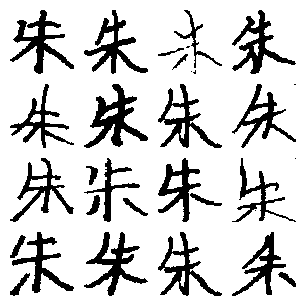 朱朱朱朱
朱朱朱朱
朱朱朱朱
朱朱朱朱